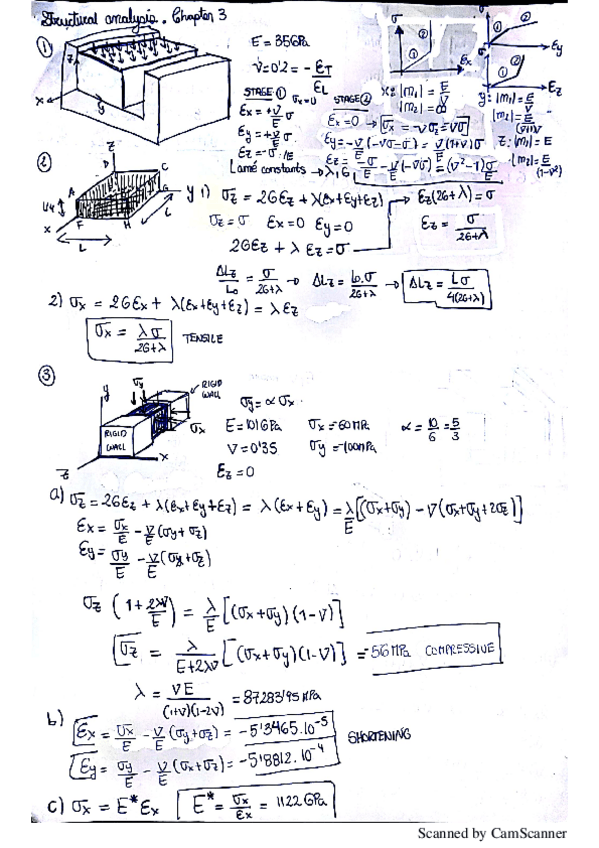 Structural analysis. Chapter 3
①
E = 35GPa
ν=0'2 = -εT/εL
STAGE ① σx=0
εx = +ν/E σ
εy = +ν/E σ
εz = -σ/E
STAGE ②
εx=0 → σx = -νσz = νσ
εy = -ν/E(-νσ-σ) = ν/E(1+ν)σ
εz = -σ/E - ν/E(-νσ) = (ν²-1)σ/E
σ
εx
σ
εy
εz
① ②
x: |m1| = E/ν
|m2| = ∞
y: |m1| = E/ν
|m2| = E/(ν(1+ν))
z: |m1| = E
|m2| = E/(1-ν²)
Lamé constants → λ, G
②
1) σz = 2Gεz + λ(εx+εy+εz)
σz = σ εx=0 εy=0
2Gεz + λεz = σ
εz(2G+λ) = σ
εz = σ/(2G+λ)
ΔLz/L0 = σ/(2G+λ) → ΔLz = L0·σ/(2G+λ) → ΔLz = Lσ/4(2G+λ)
2) σx = 2Gεx + λ(εx+εy+εz) = λεz
σx = λσ/(2G+λ) TENSILE
③
RIGID WALL
RIGID WALL
σy
σx
y
x
z
σy = α σx
E=101GPa σx=60MPa α = 10/6 = 5/3
ν=0'35 σy=-100MPa
εz=0
a) σz = 2Gεz + λ(εx+εy+εz) = λ(εx+εy) = λ/E[(σx+σy) - ν(σx+σy+2σz)]
εx = σx/E - ν/E(σy+σz)
εy = σy/E - ν/E(σx+σz)
σz(1+2λν/E) = λ/E[(σx+σy)(1-ν)]
σz = λ/(E+2λν)[(σx+σy)(1-ν)] = 56MPa COMPRESSIVE
λ = νE/((1+ν)(1-2ν)) = 87283'95 MPa
b) εx = σx/E - ν/E(σy+σz) = -5'3465.10⁻⁵
SHORTENING
εy = σy/E - ν/E(σx+σz) = -5'8812.10⁻⁴
c) σx = E*εx E* = σx/εx = 1122GPa
Scanned by CamScanner